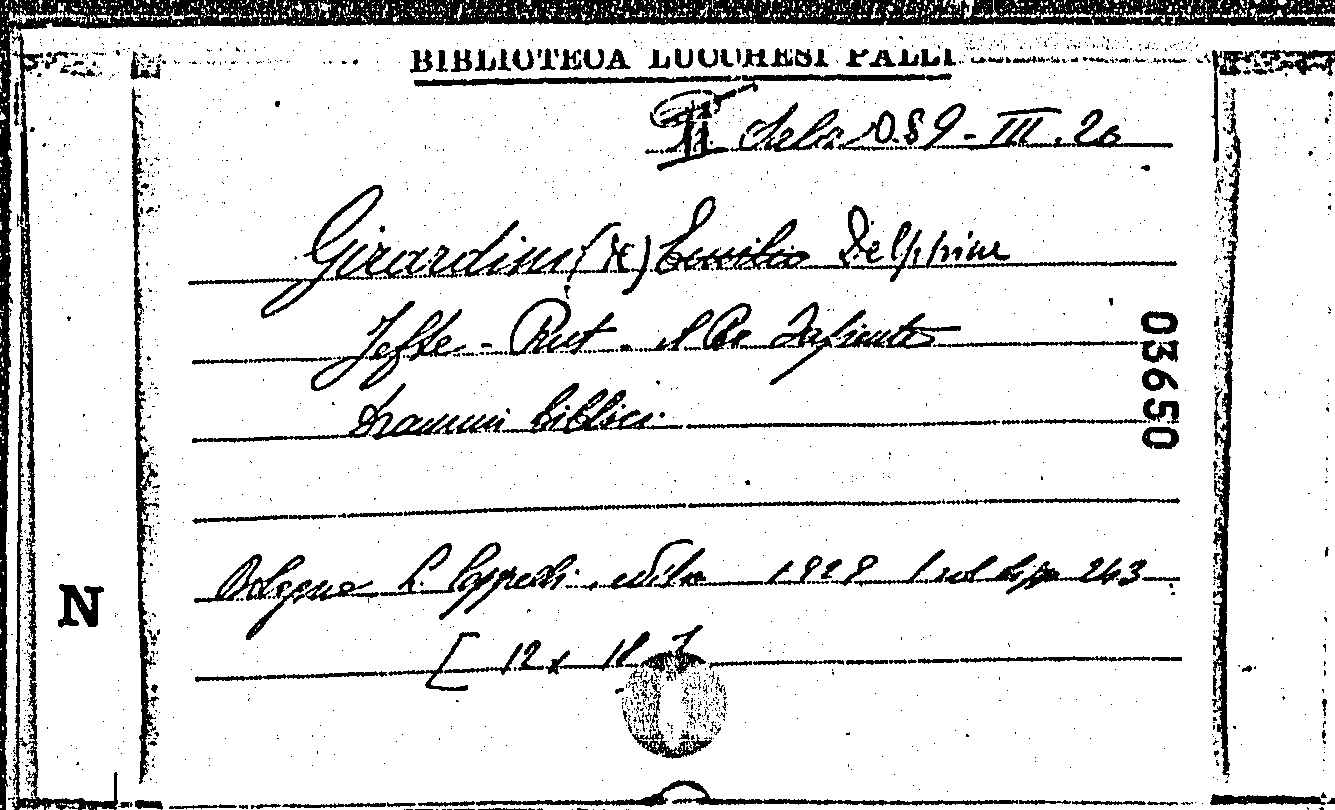 BIBLIOTECA LUCCHESI PALLI
089-III.26
Girardini (de) Emilio Delphine
Jefte - Rut - Il Re
drammi biblici
03650
Bologna L. Cappelli editore 1929 1 vol di pp 243
N
[12 x 18]